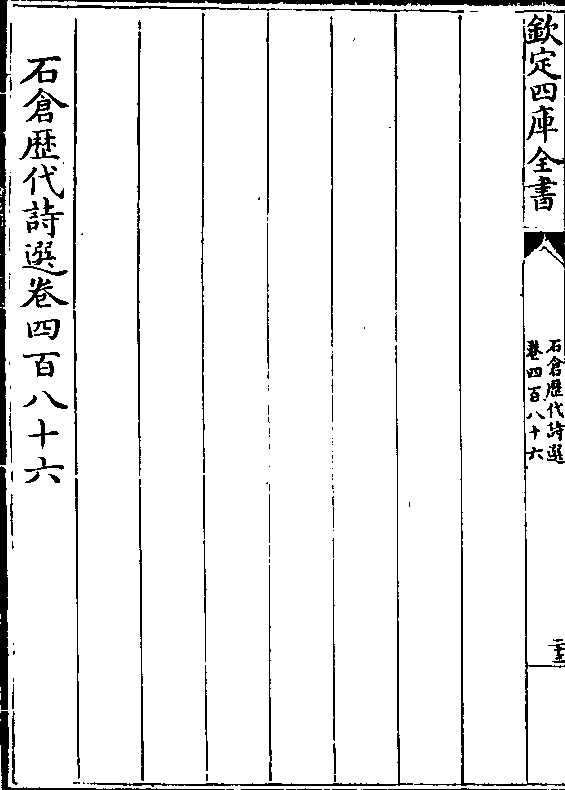 欽定四庫全書
石倉歴代詩選
卷四百八十六
二十三
石倉歴代詩選卷四百八十六